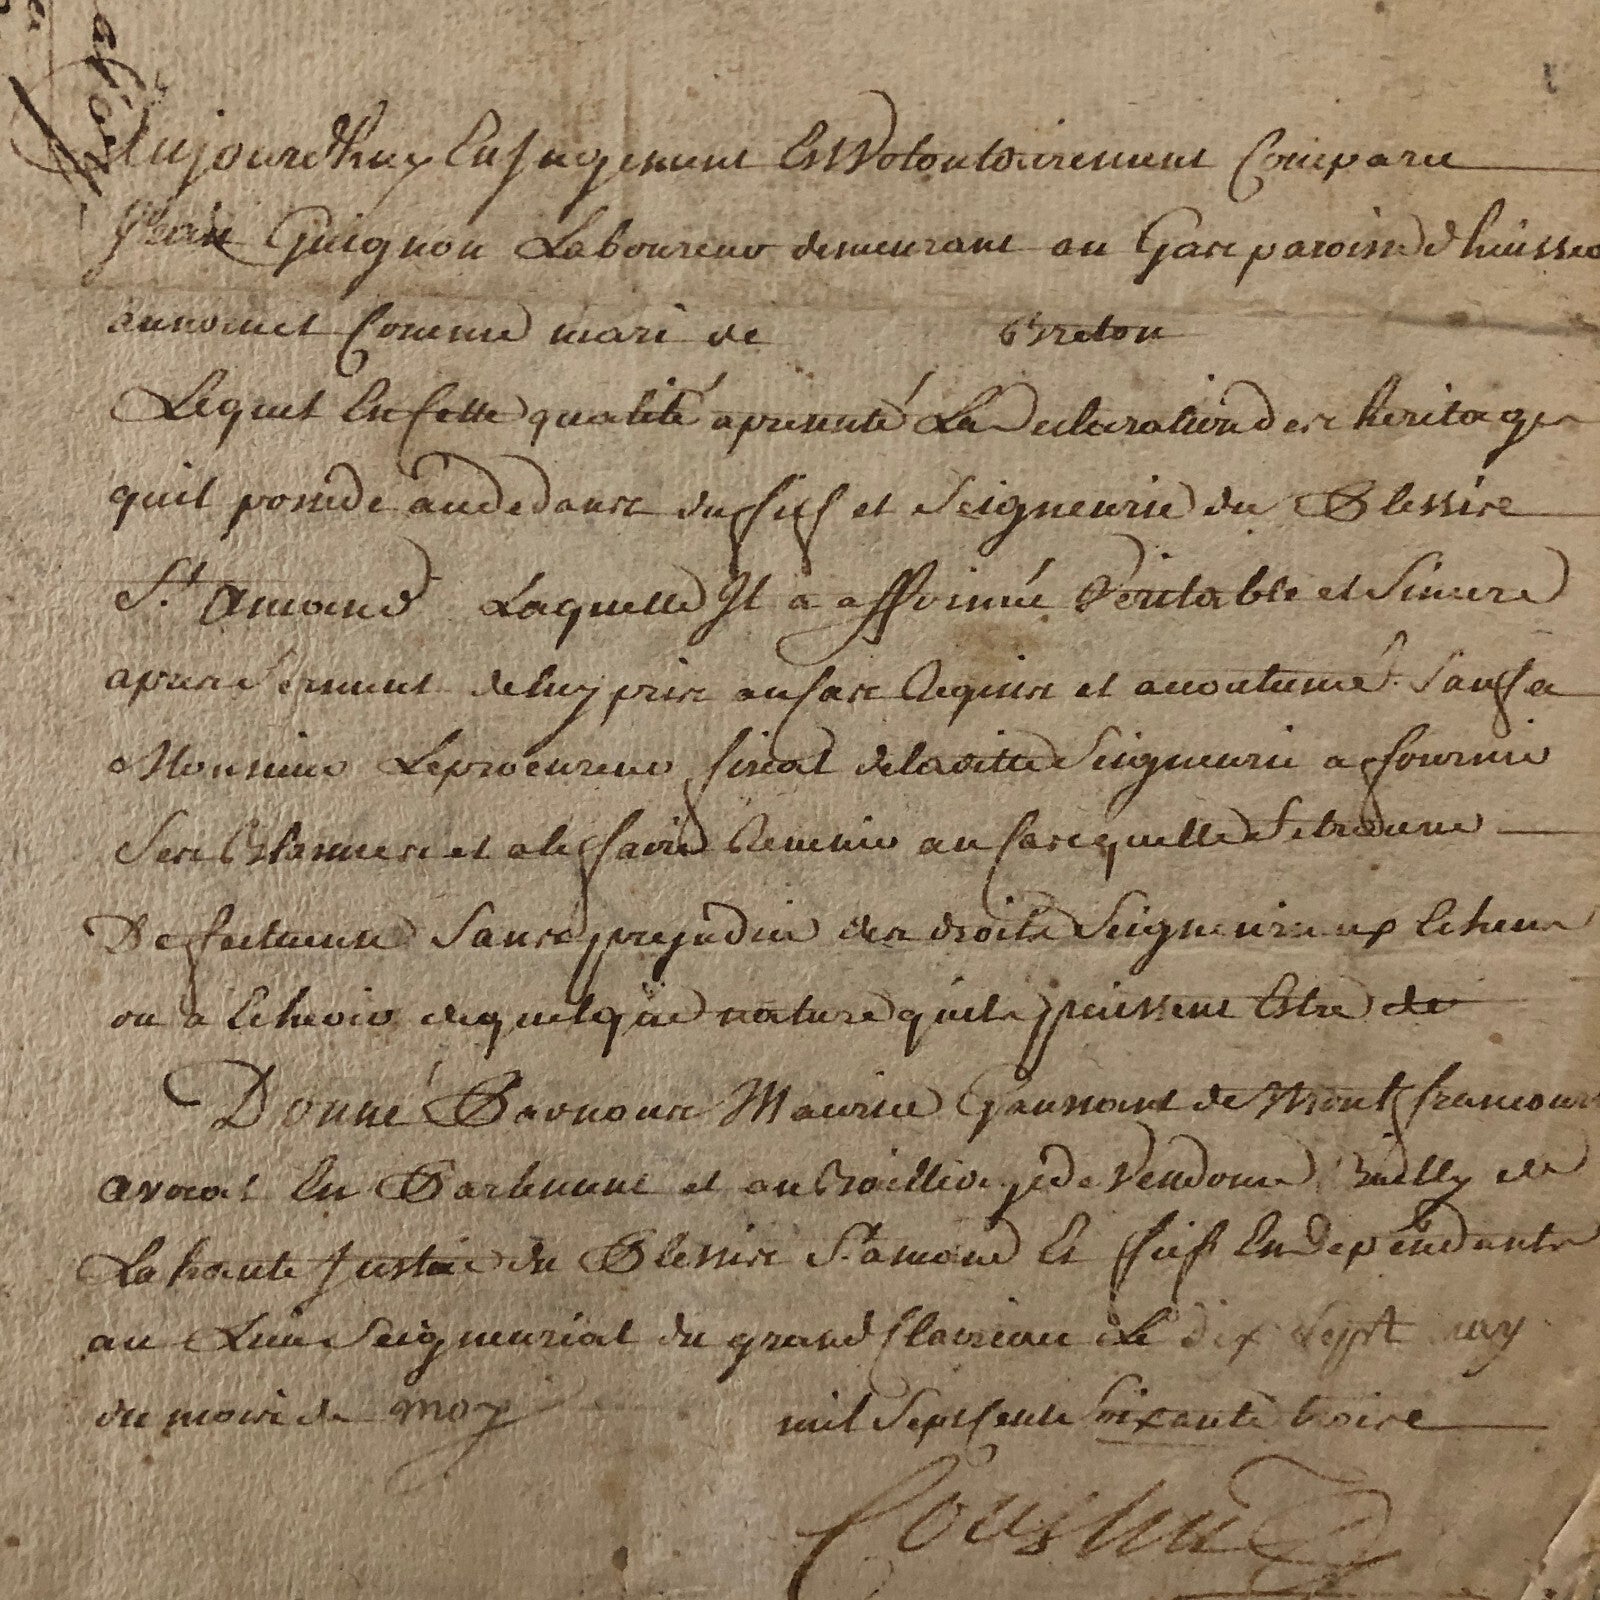 Aujourdhuy En Jugement Est Volontairement Comparu
Jean Guignon Laboureur demeurant au Gas paroisse d huisseau
au nom et Comme mari de Breton
Lequel En Cette qualité a presenté La Declaration des heritages
quil possede audedans du fief et Seigneurie du Plessis
St. Amand Laquelle Il a affirmée Veritable et Sincere
apres Serment deluy pris au Cas Requis et accoutumé. Sauf a
Monsieur Leprocureur fiscal deladitte Seigneurie a fournir
Ses Blasmes et a la faire Revenir au Cas quelle Se trouve
Defectueuse Sans prejudice des droits Seigneuriaux Echeus
ou a Echeoir de quelque nature quils puissent Estre de
Donné Par nous Maurice de Montfrancour
avocat En Parlement et au Bailliage de Vendome Bailly de
La haute Justice du Plessis St amand Et fief En dependants
au Lieu Seigneurial du grand Clavieau Le dix Sept
du mois de may mil Sept Cents Soixante trois